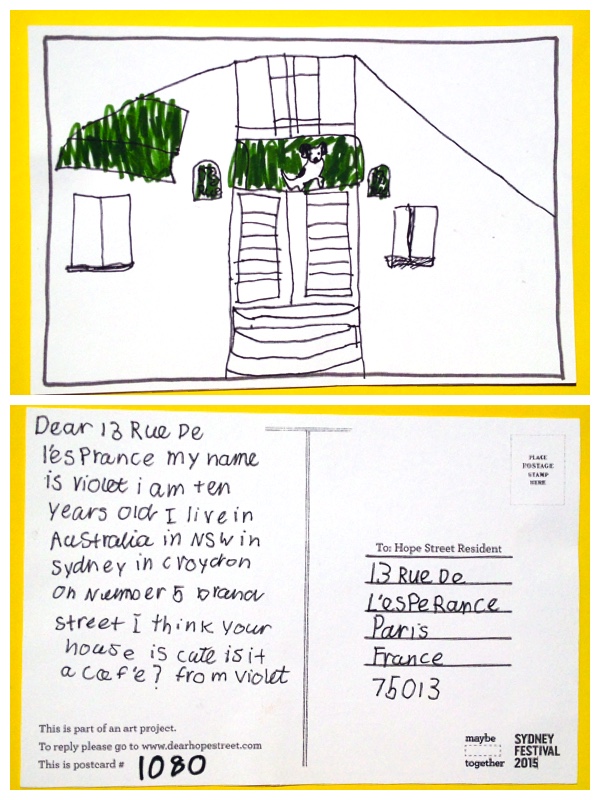 Dear 13 Rue De
l'esPrance my name
is violet i am ten
years old I live in
Australia in NSW in
sydney in croydon
on Number 5 brand
street I think your
house is cute is it
a caf'e? from violet
This is part of an art project.
To reply please go to www.dearhopestreet.com
This is postcard # 1080
PLACE
POSTAGE
STAMP
HERE
To: Hope Street Resident
13 Rue De
L'esPeRance
Paris
France
75013
maybe
together
SYDNEY
FESTIVAL
2015